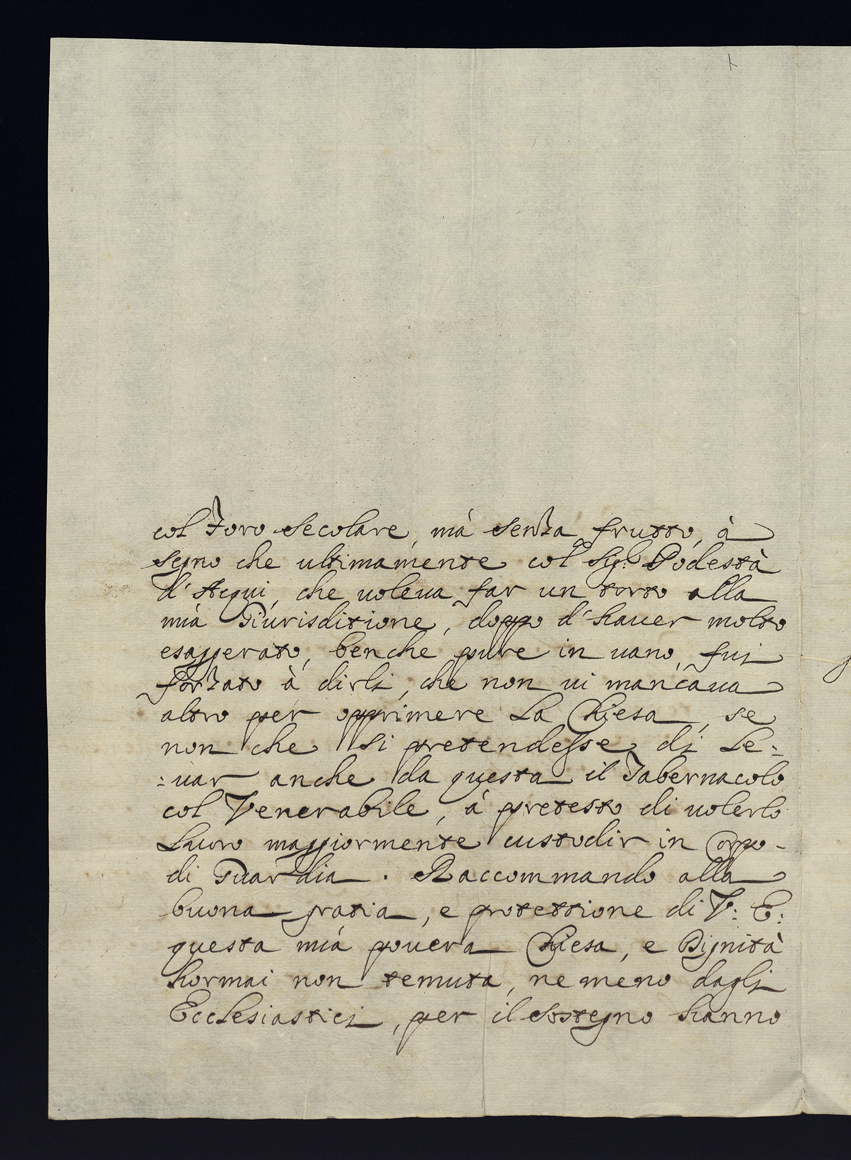 col Foro secolare, mà senza frutto, à
segno che ultimamente col Sig.r Podestà
d'Acqui, che voleva far un torto alla
mià Giurisditione, doppo d'haver molto
esaggerato, benche pure in vano, fui
forzato à dirli, che non vi mancava
altro per opprimere la Chiesa, se
non che si pretendesse di Le=
=uar anche da questa il Tabernacolo
col Venerabile, à pretesto di volerlo
Lauro maggiormente custodir in Corpo-
di Guardia. Raccommando alla
buona gratia, e protettione di V: E:
questa mià povera Chiesa, e Dignità
hormai non temuta, ne meno dagli
Ecclesiastici, per il sostegno hanno